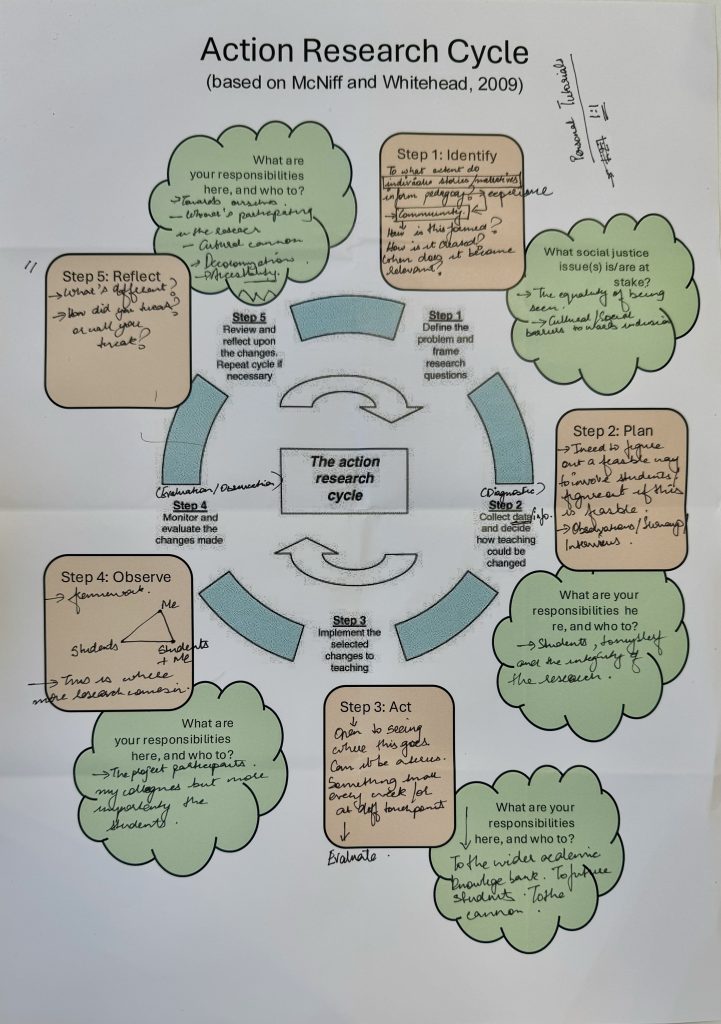 Action Research Cycle
(based on McNiff and Whitehead, 2009)
Personal Tutorials
1:1
What are
your responsibilities
here, and who to?
→ Towards ourselves.
- Whoever's participating
in the research
- Cultural cannon
→ Decolonization
- Accessibility.
Step 1: Identify
To what extent do
individual stories/narratives
inform pedagogy? → experience
→ Community.
How is this formed?
How is it created?
When does it become
relevant?
What social justice
issue(s) is/are at
stake?
→ The equality of being
seen.
→ Cultural/Social
barriers towards inclusion
Step 5: Reflect
→ What's different?
→ How did you
or will you
Step 5
Review and
reflect upon
the changes.
Repeat cycle if
necessary
Step 1
Define the
problem and
frame
research
questions
The action
research
cycle
Step 2: Plan
→ I need to figure
out a feasible way
to involve students/
figure out if this
is feasible.
→ Observations/Surveys/
Interviews.
(Evaluation/Observation)
Step 4
Monitor and
evaluate the
changes made
(Diagnostic)
Step 2
Collect data info.
and decide
how teaching
could be
changed
What are your
responsibilities he
re, and who to?
→ Students, to myself
and the integrity of
the research.
Step 4: Observe
→ framework.
Me
Students
Students
+ Me
→ This is where
more research comes in.
Step 3
Implement the
selected
changes to
teaching
What are
your responsibilities
here, and who to?
→ The project participants.
my colleagues but more
importantly the
students.
Step 3: Act
Open to seeing
where this goes.
Can it be a series.
Something small
every week/or
at diff touchpoints
Evaluate.
What are your
responsibilities
here, and who to?
To the wider academic
knowledge bank. To future
students. To the
cannon.